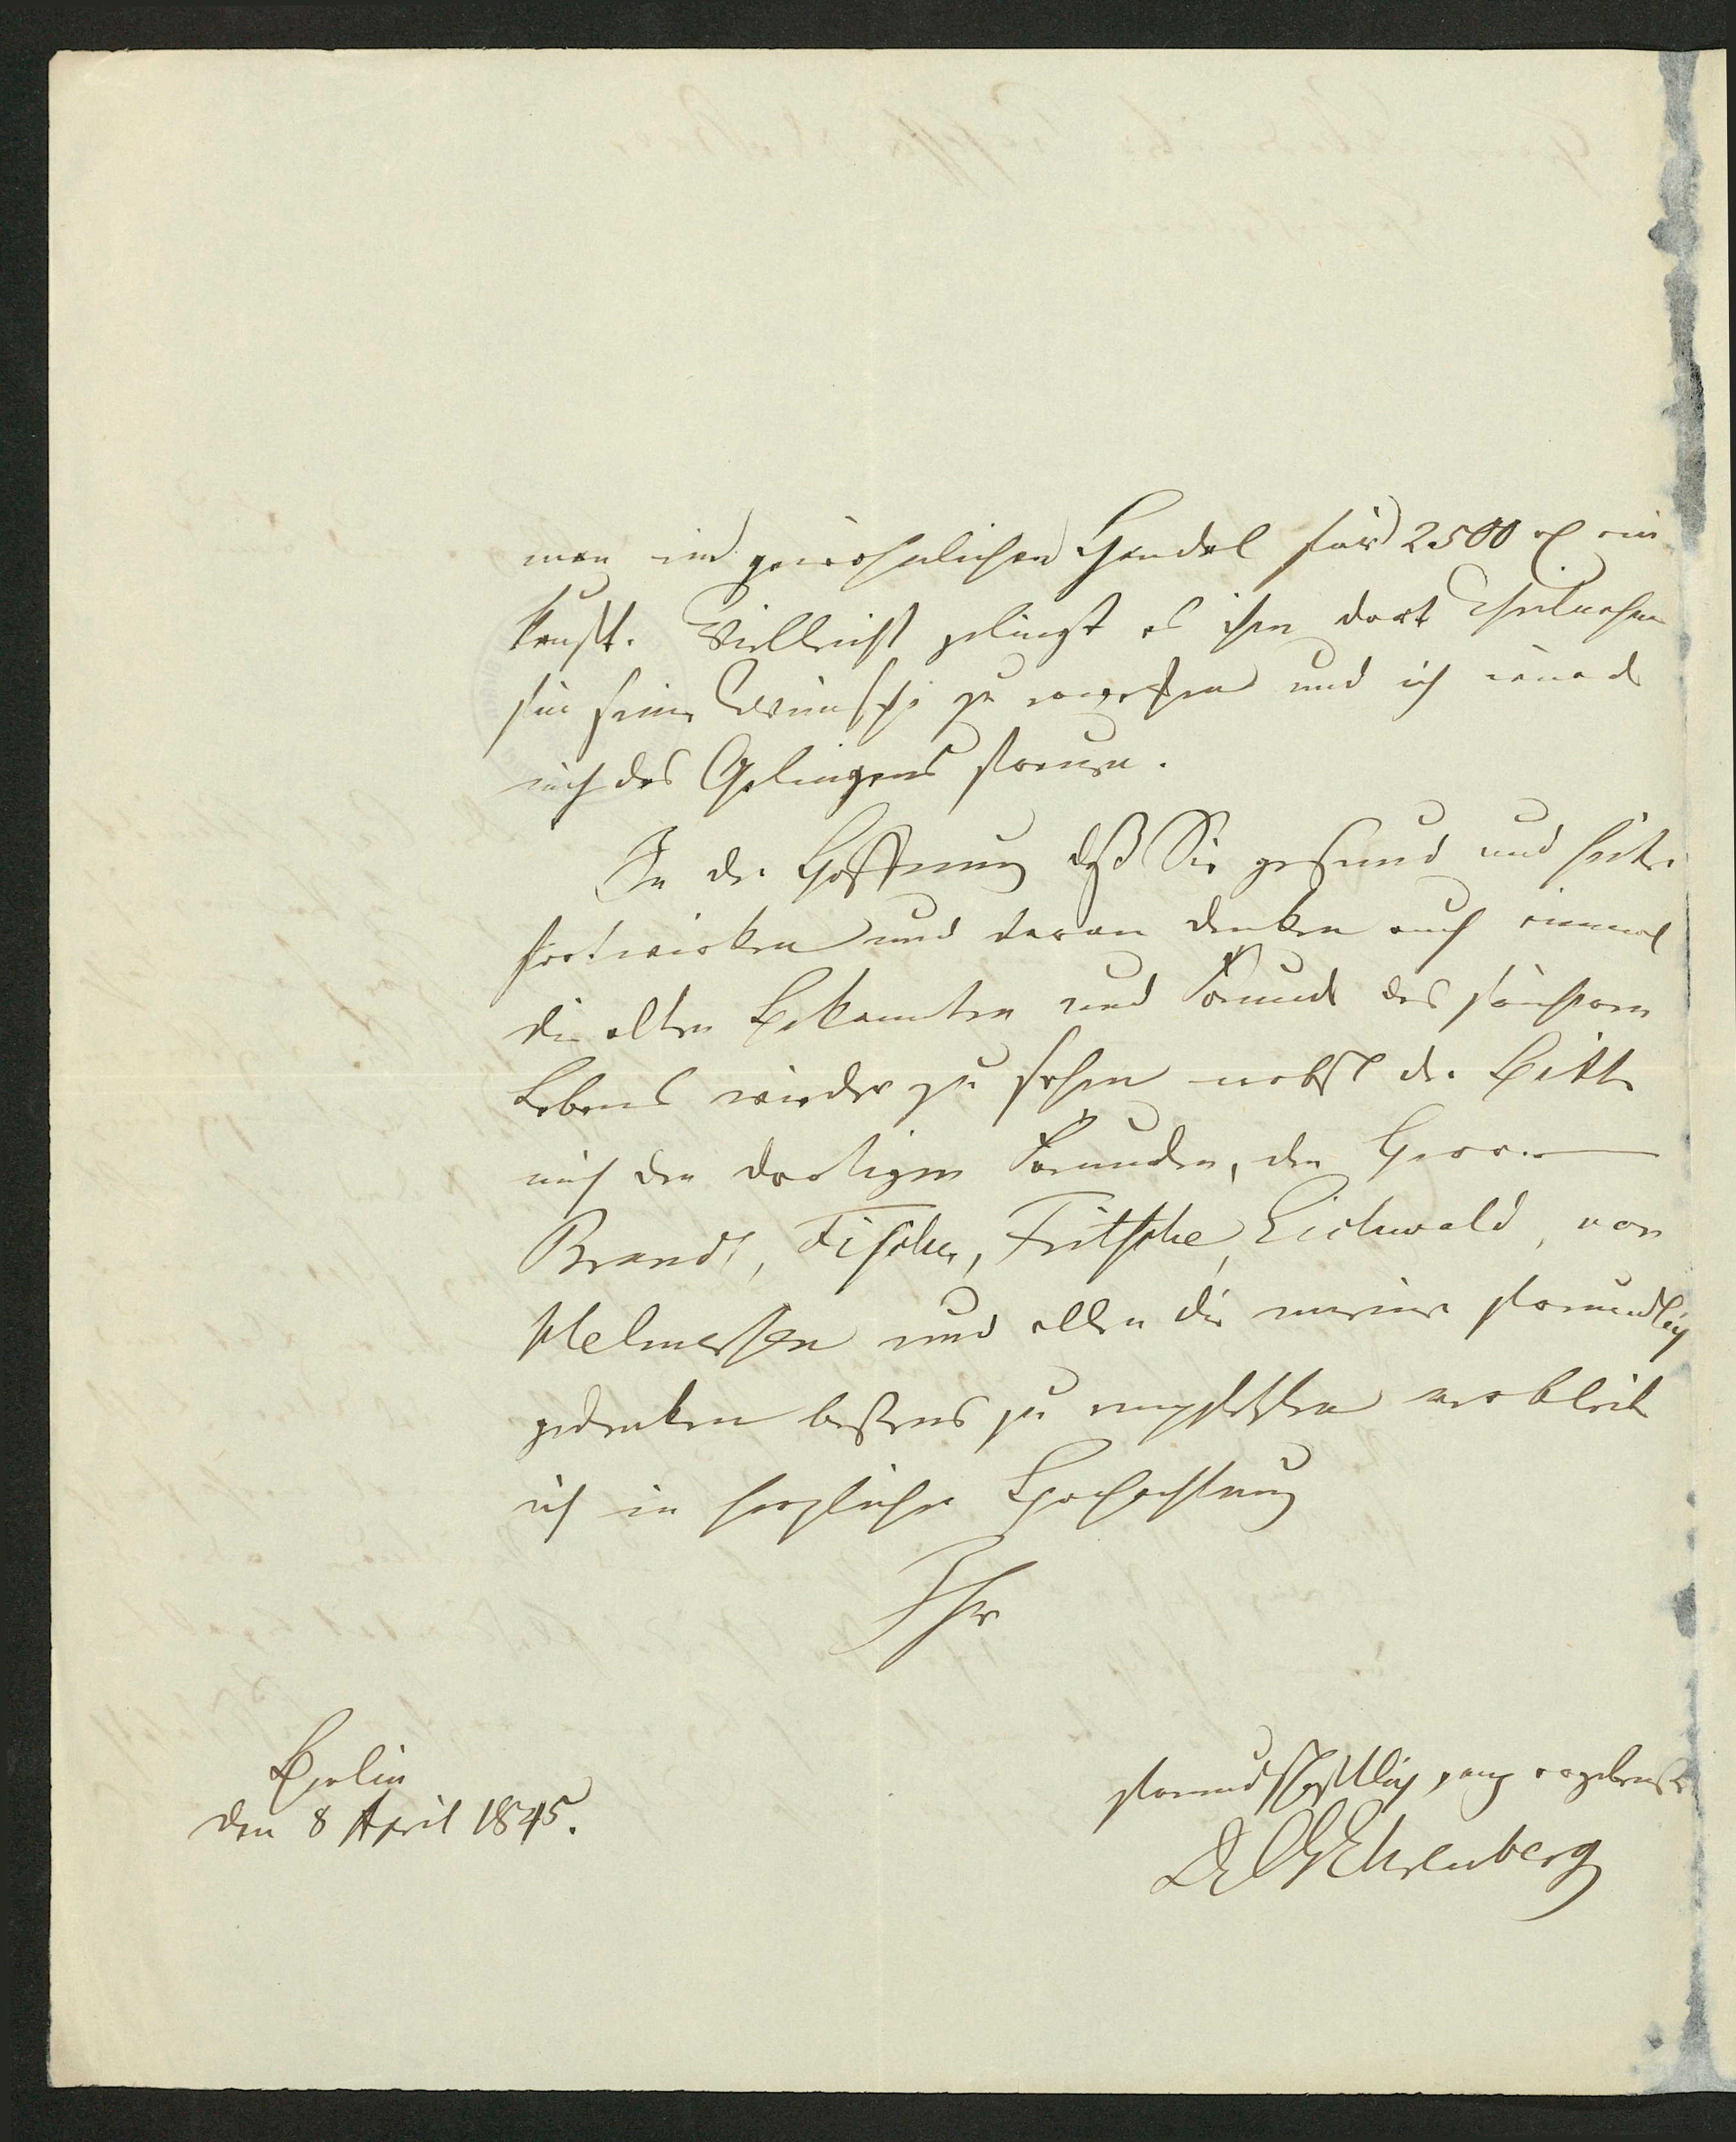 man im gewöhnlichen Handel für 2500 rℓ ein
kauft. Vielleicht gelingt es ihm dort Theilnahme
für seine Wünsche zu erwecken und ich würde
mich des Gelingens freuen.
In der Hoffnung daß Sie gesund und heiter
fortwirken und daran denken auch einmal
die alten Bekannten und Freunde des früheren
Lebens wieder zu sehen nebst der Bitte
mich den dortigen Freunden, den Herren
Brandt, Fischer, Fritsche, Eichwald, von
Helmersen und allen die meiner freundlich
gedenken bestens zu empfehlen verbleibe
ich in herzlicher Hochachtung
Ihr
freundschaftlich ganz ergebenster
Dr CGEhrenberg
Berlin
den 8 April 1845.